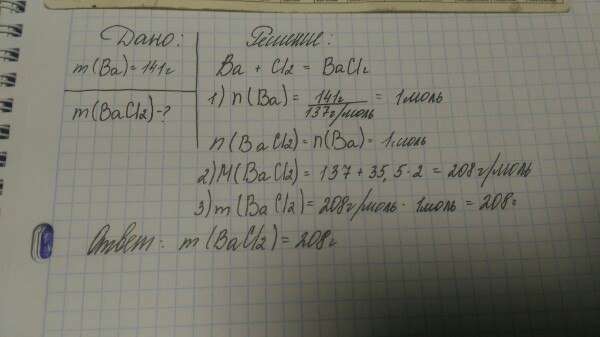 Дано:
m(Ba)=141г
m(BaCl2)-?
Решение:
Ba + Cl2 = BaCl2
1) n(Ba) = 141г / 137г/моль = 1моль
n(BaCl2)=n(Ba)=1моль
2) M(BaCl2) = 137 + 35,5·2 = 208г/моль
3) m(BaCl2)=208г/моль · 1моль = 208г
Ответ: m(BaCl2)=208г